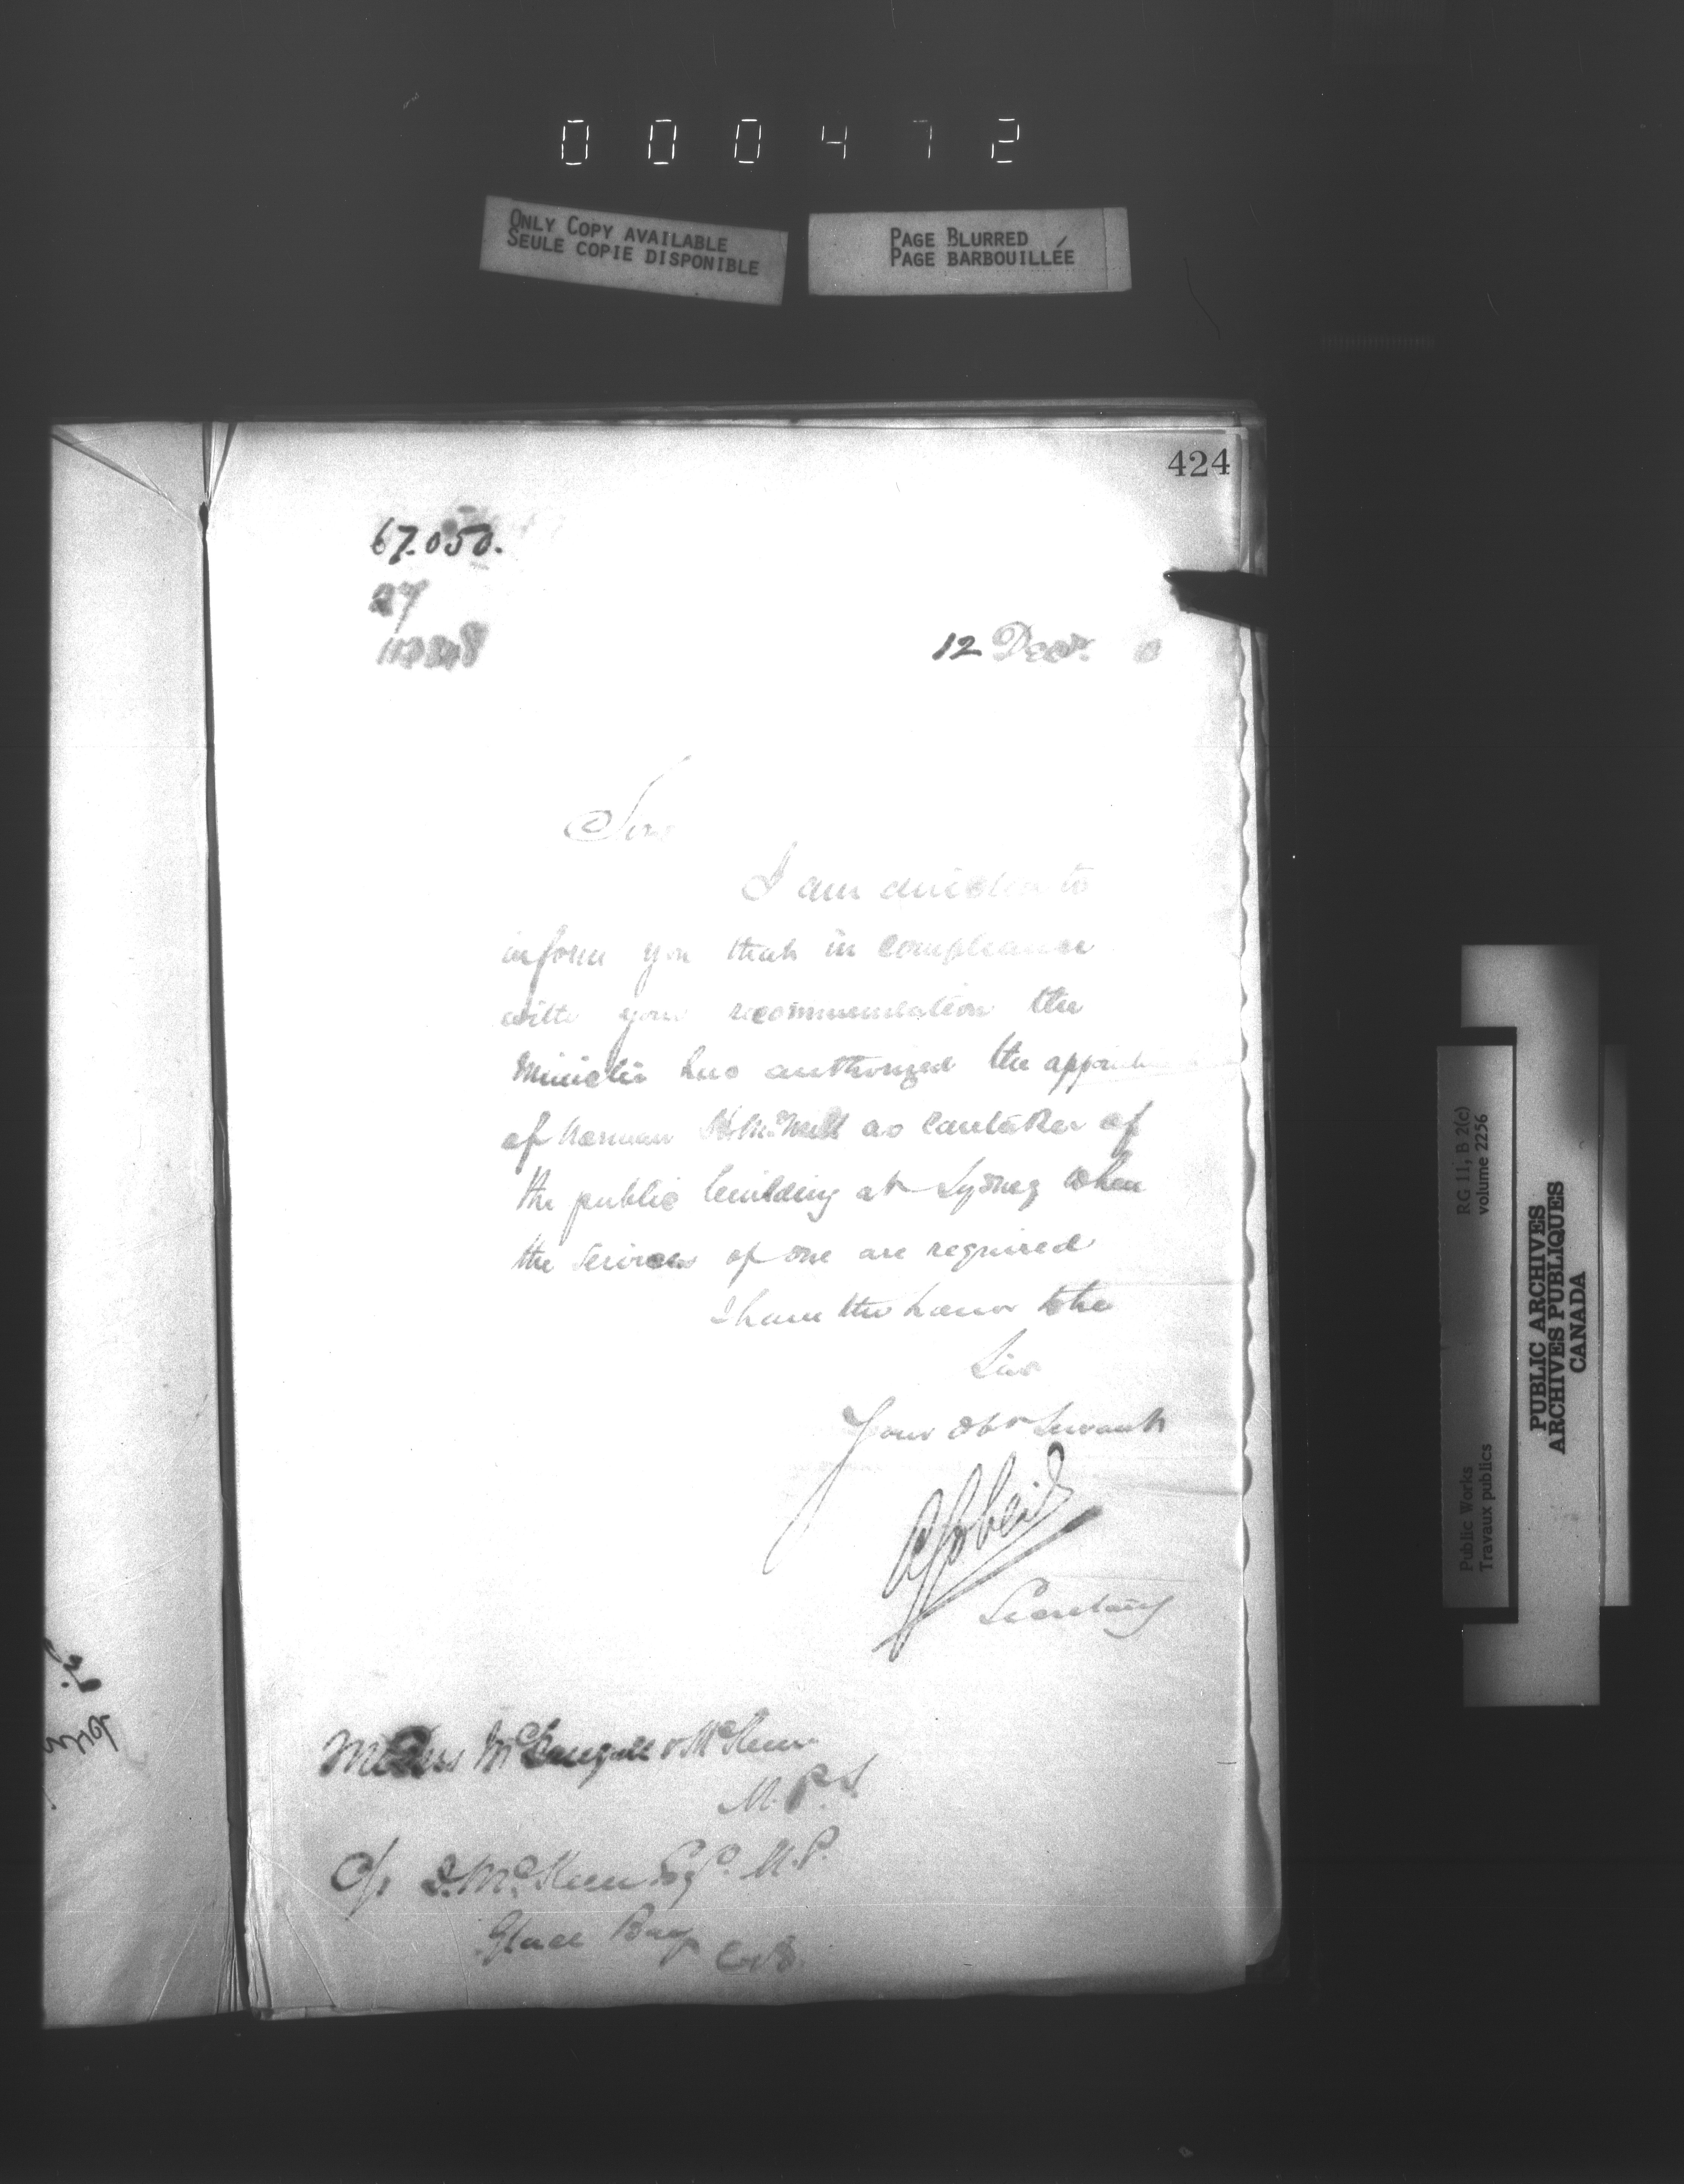 000472
ONLY COPY AVAILABLE
SEULE COPIE DISPONIBLE
PAGE BLURRED
PAGE BARBOUILLÉE
424
67.050.
27
12 Decr. 0
Sir
I am directed to
inform you that in compliance
with your recommendation the
Minister has authorized the appointm
of Norman McNeill as caretaker of
the public building at Sydney when
the services of one are required
I have the honor to be
Sir
Your Obt Servant
AGobeil
Secretary
Messrs McDougall & McKeen
M.P.s
c/o D. McKeen Esqr. M.P.
Glace Bay
C.B.
RG 11, B 2(c)
volume 2256
Public Works
Travaux publics
PUBLIC ARCHIVES
ARCHIVES PUBLIQUES
CANADA